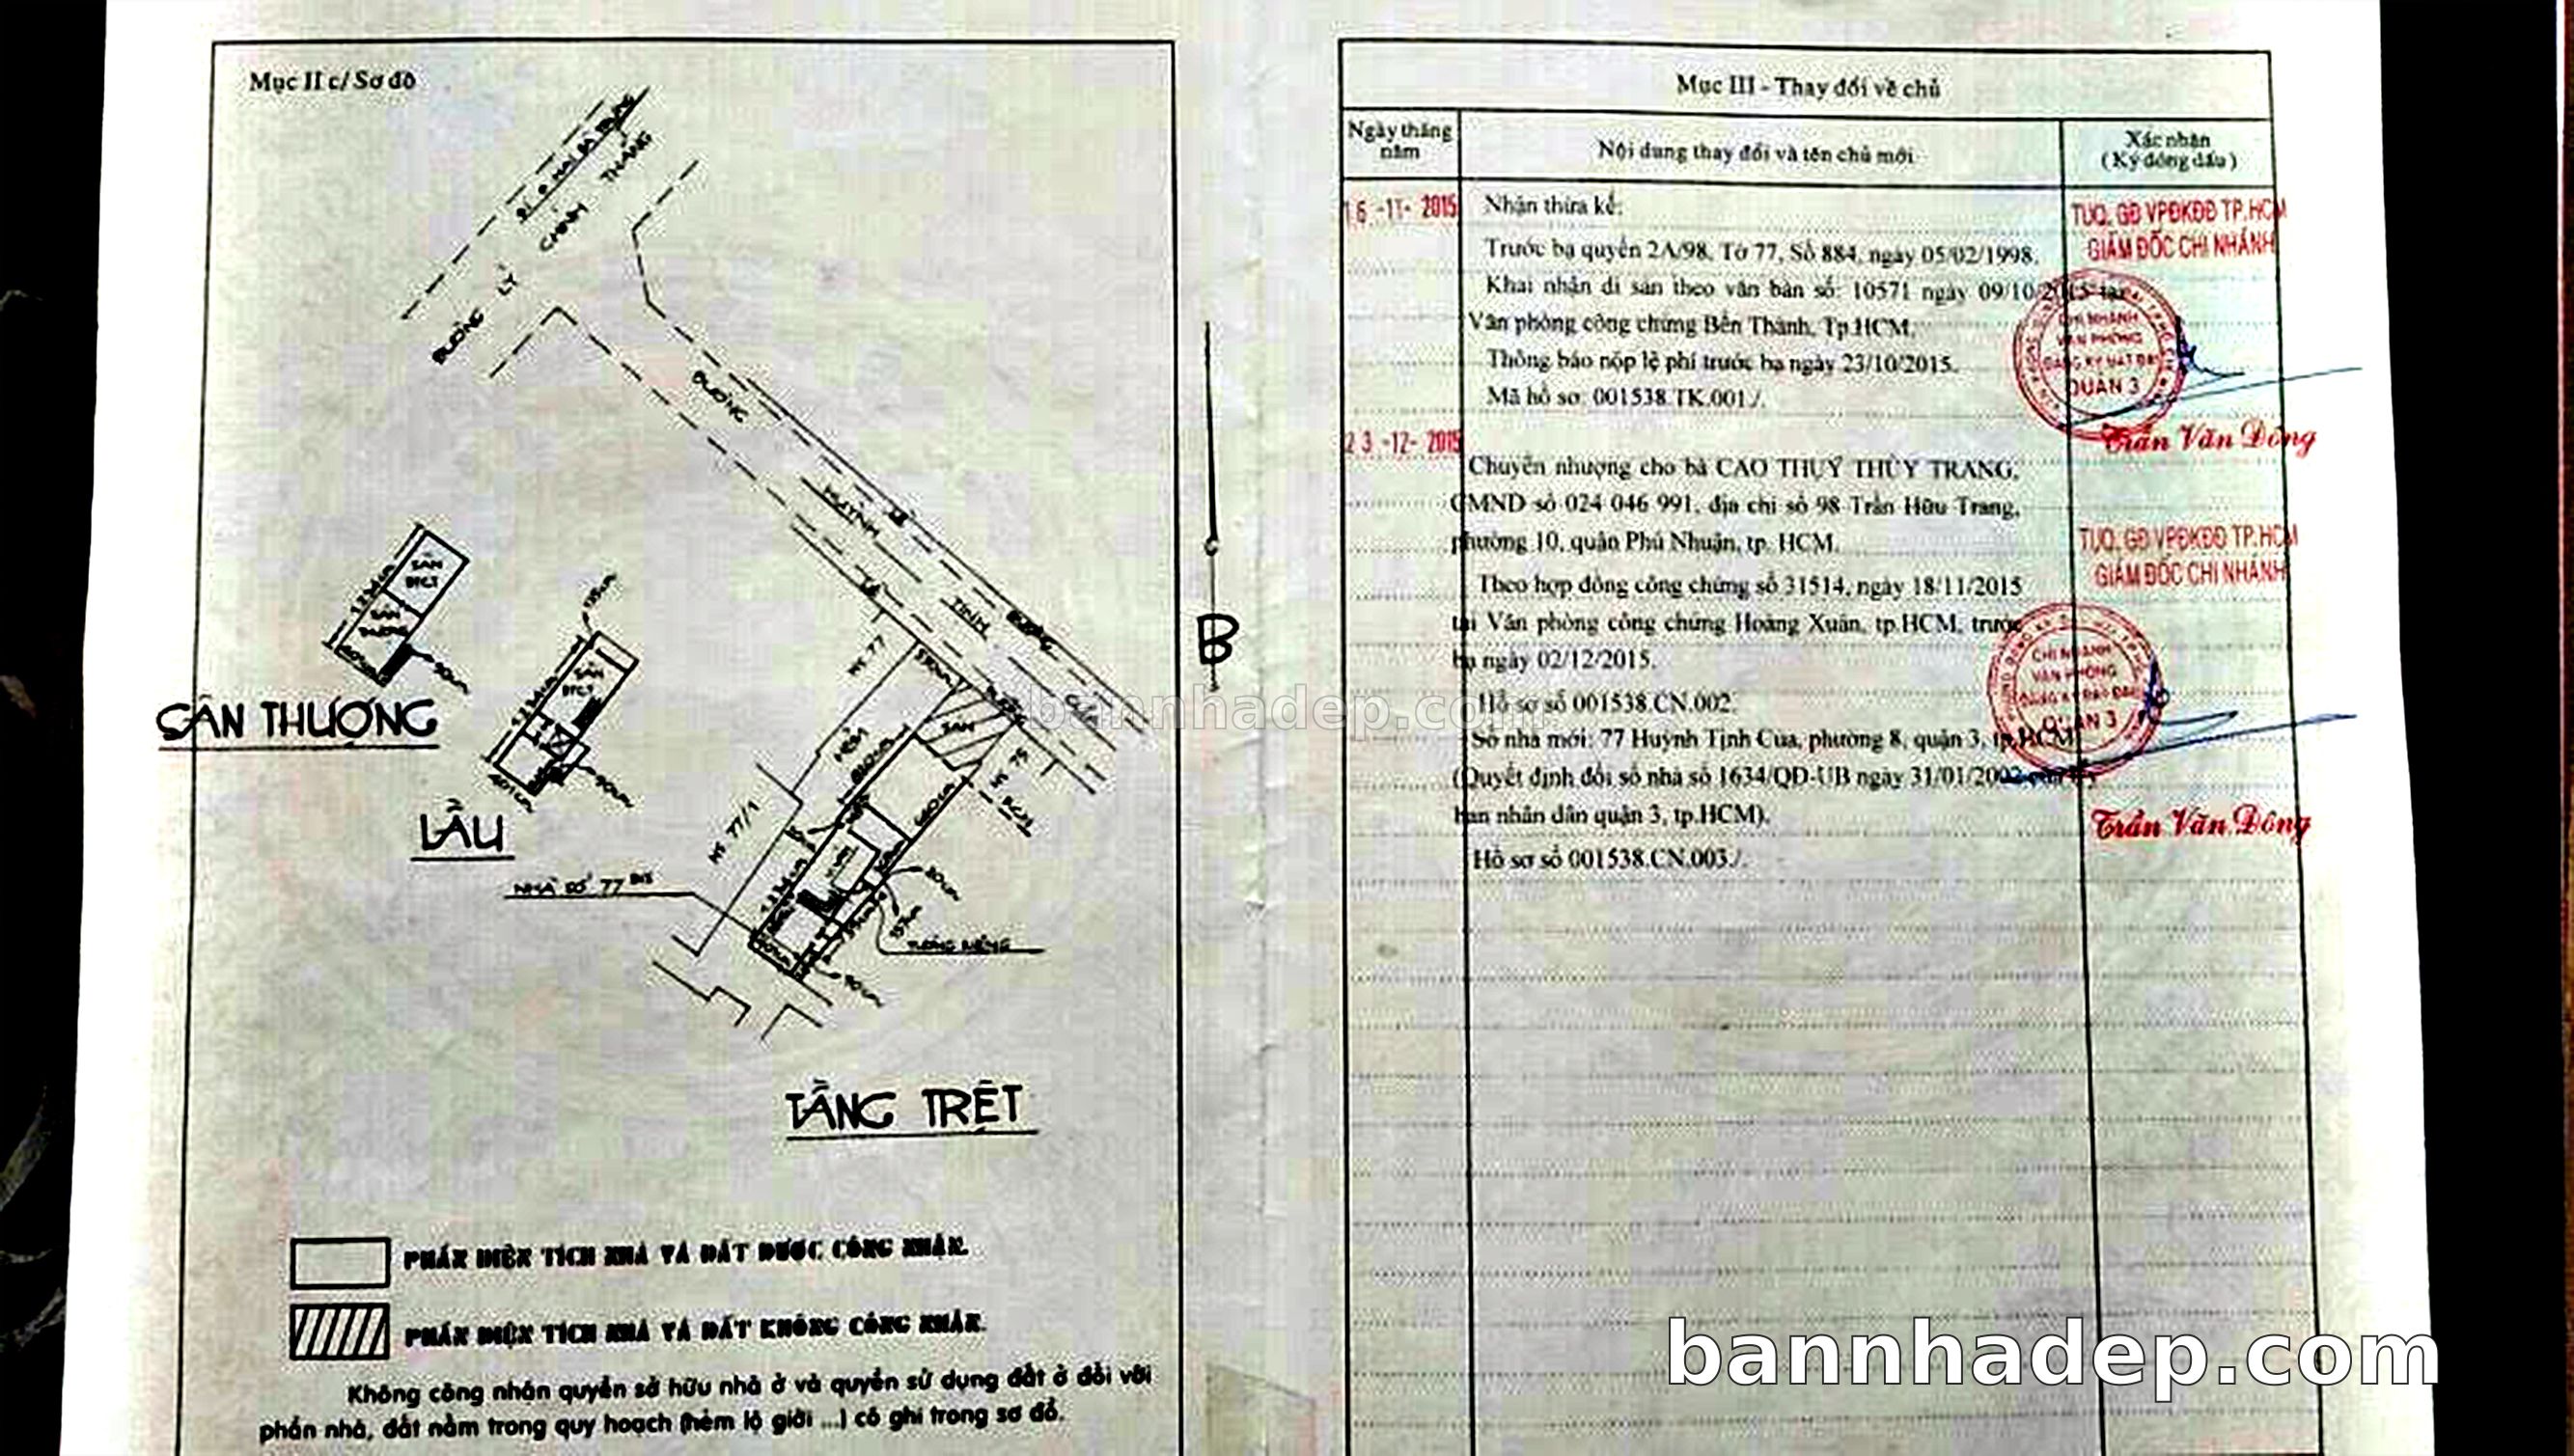 Mục II c/ Sơ đồ
ĐI Đ HAI BÀ TRƯNG
ĐƯỜNG LÝ CHÍNH THẮNG
ĐƯỜNG
HUỲNH TỊNH CỦA
LỀ ĐƯỜNG
LỀ ĐƯỜNG
SÂN BTCT
SÂN THƯỢNG
SÂN THƯỢNG
SÂN BTCT
LẦU
NS 77
HẺM
SÂN
NS 75
NS 77/1
NHÀ SỐ 77 BIS
TƯỜNG RIÊNG
TẦNG TRỆT
B
PHẦN DIỆN TÍCH NHÀ VÀ ĐẤT ĐƯỢC CÔNG NHẬN.
PHẦN DIỆN TÍCH NHÀ VÀ ĐẤT KHÔNG CÔNG NHẬN.
Không công nhận quyền sở hữu nhà ở và quyền sử dụng đất ở đối với
phần nhà, đất nằm trong quy hoạch (hẻm lộ giới ...) có ghi trong sơ đồ.
Mục III - Thay đổi về chủ
Ngày tháng năm
Nội dung thay đổi và tên chủ mới
Xác nhận
(Ký đóng dấu)
16 -11- 2015
Nhận thừa kế.
Trước bạ quyển 2A/98, Tờ 77, Số 884, ngày 05/02/1998.
Khai nhận di sản theo văn bản số: 10571 ngày 09/10/2015 tại
Văn phòng công chứng Bến Thành, Tp.HCM.
Thông báo nộp lệ phí trước bạ ngày 23/10/2015.
Mã hồ sơ: 001538.TK.001./.
TUQ. GĐ VPĐKĐĐ TP.HCM
GIÁM ĐỐC CHI NHÁNH
CHI NHÁNH
VĂN PHÒNG
ĐĂNG KÝ ĐẤT ĐAI
QUẬN 3
Trần Văn Đông
23 -12- 2015
Chuyển nhượng cho bà CAO THỤY THÙY TRANG,
CMND số 024 046 991, địa chỉ số 98 Trần Hữu Trang,
phường 10, quận Phú Nhuận, tp. HCM.
Theo hợp đồng công chứng số 31514, ngày 18/11/2015
tại Văn phòng công chứng Hoàng Xuân, tp.HCM, trước
bạ ngày 02/12/2015.
Hồ sơ số 001538.CN.002.
Số nhà mới: 77 Huỳnh Tịnh Của, phường 8, quận 3, tp.HCM
(Quyết định đổi số nhà số 1634/QĐ-UB ngày 31/01/2002 của Ủy
ban nhân dân quận 3, tp.HCM).
Hồ sơ số 001538.CN.003./.
TUQ. GĐ VPĐKĐĐ TP.HCM
GIÁM ĐỐC CHI NHÁNH
CHI NHÁNH
VĂN PHÒNG
ĐĂNG KÝ ĐẤT ĐAI
QUẬN 3
Trần Văn Đông
bannhadep.com
bannhadep.com